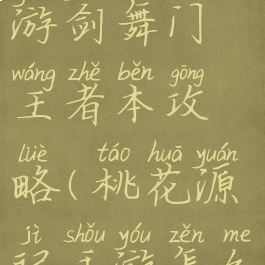 游剑舞门
wáng zhě běn gōng
王者本攻
lüè táo huā yuán
略(桃花源
jì shǒu yóu zěn me
记手游怎么